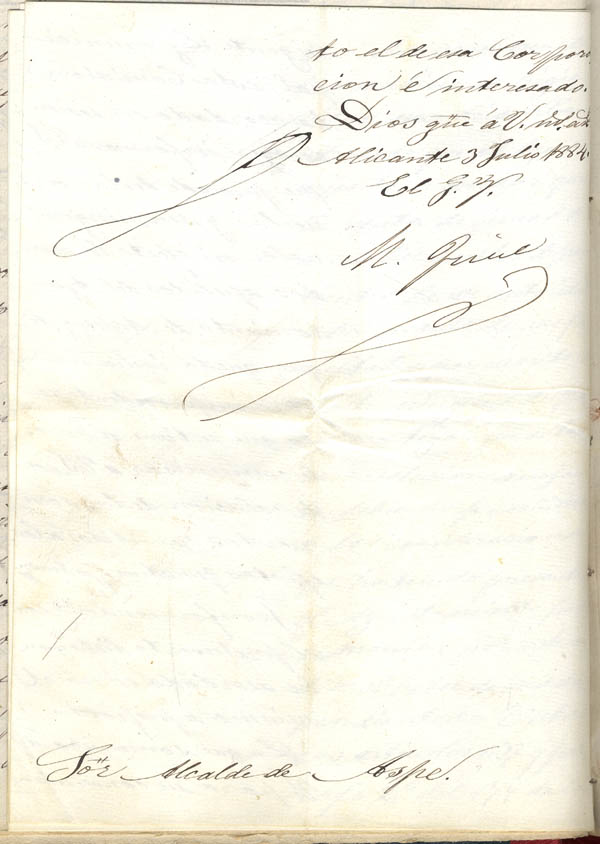 to el de esa Corpora
cion é interesado.
Dios gũe á V. m. a.
Alicante 3 Julio 1884.
El G. Y.
M.
Sõr Alcalde de Aspe.